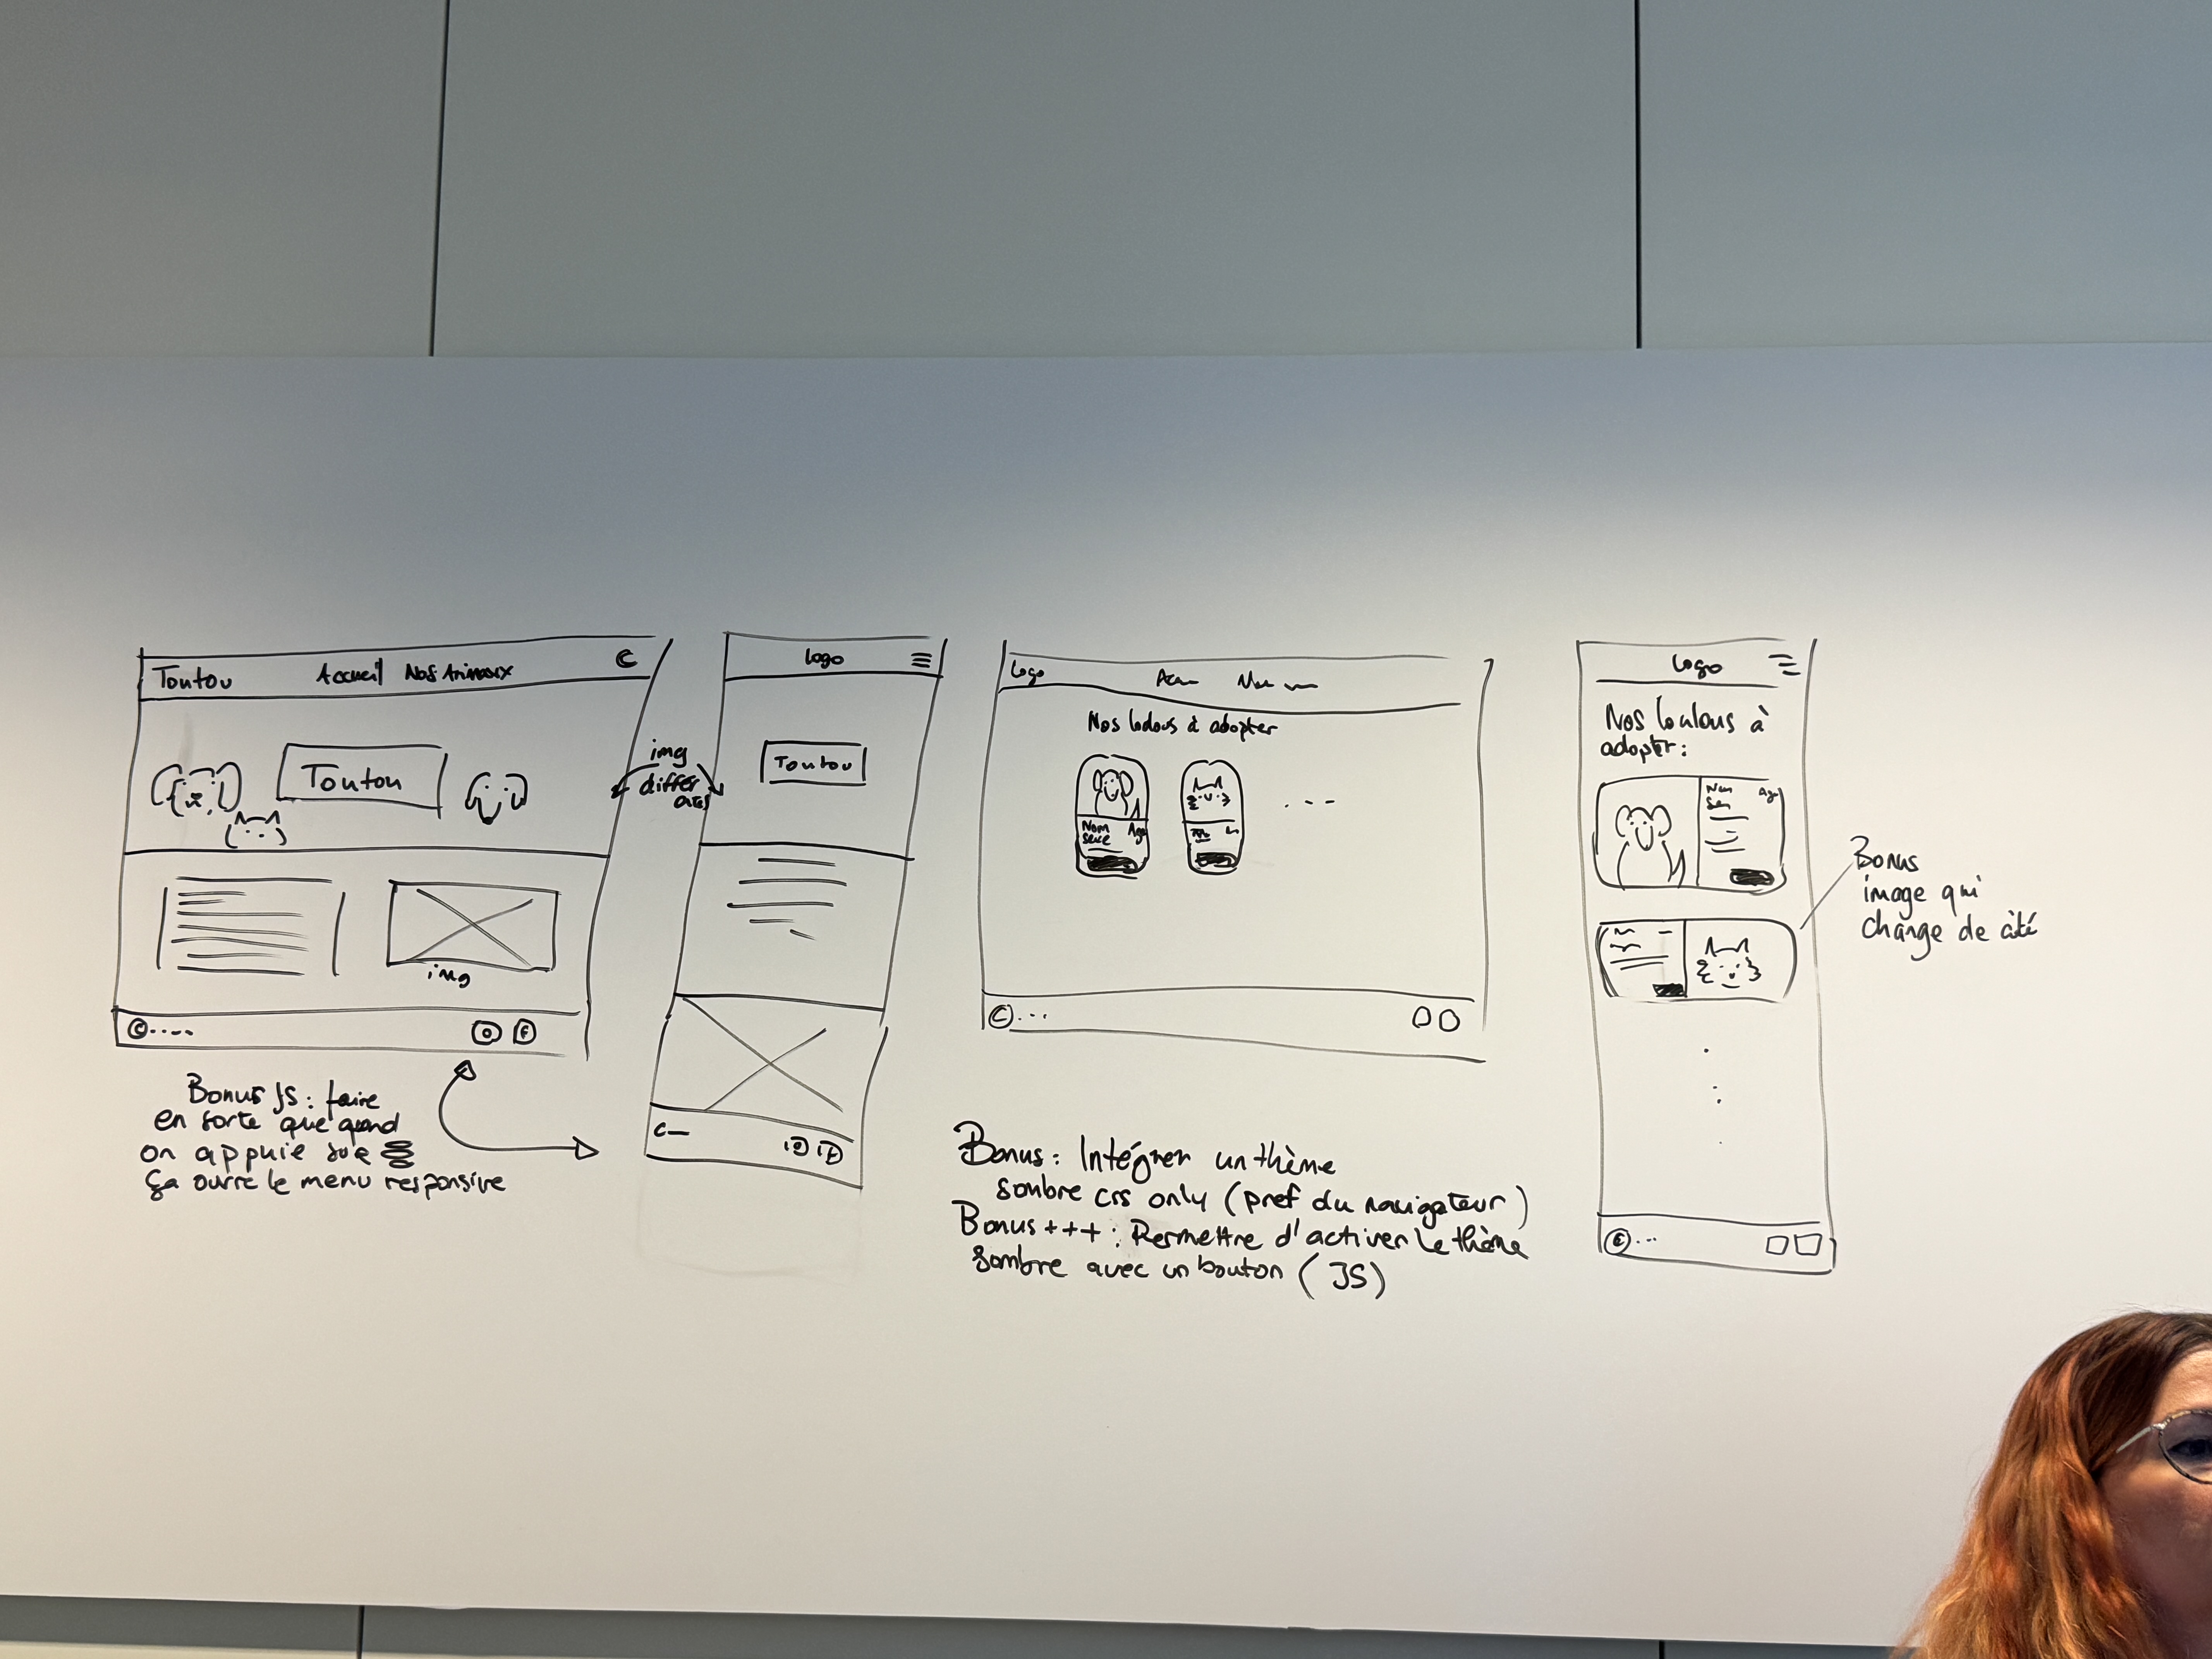 Toutou Accueil Nos Animaux
Toutou
img
©
Bonus JS : faire
en sorte que quand
on appuie sur
ça ouvre le menu responsive
img
différentes
Logo
Toutou
Logo
Nos loulous à adopter
Nom Age
sexe
...
© ...
Bonus : Intégrer un thème
sombre css only (pref du navigateur)
Bonus +++ : Permettre d'activer le thème
sombre avec un bouton (JS)
Logo
Nos loulous à
adopter :
Nom Age
© ...
Bonus
image qui
change de côté